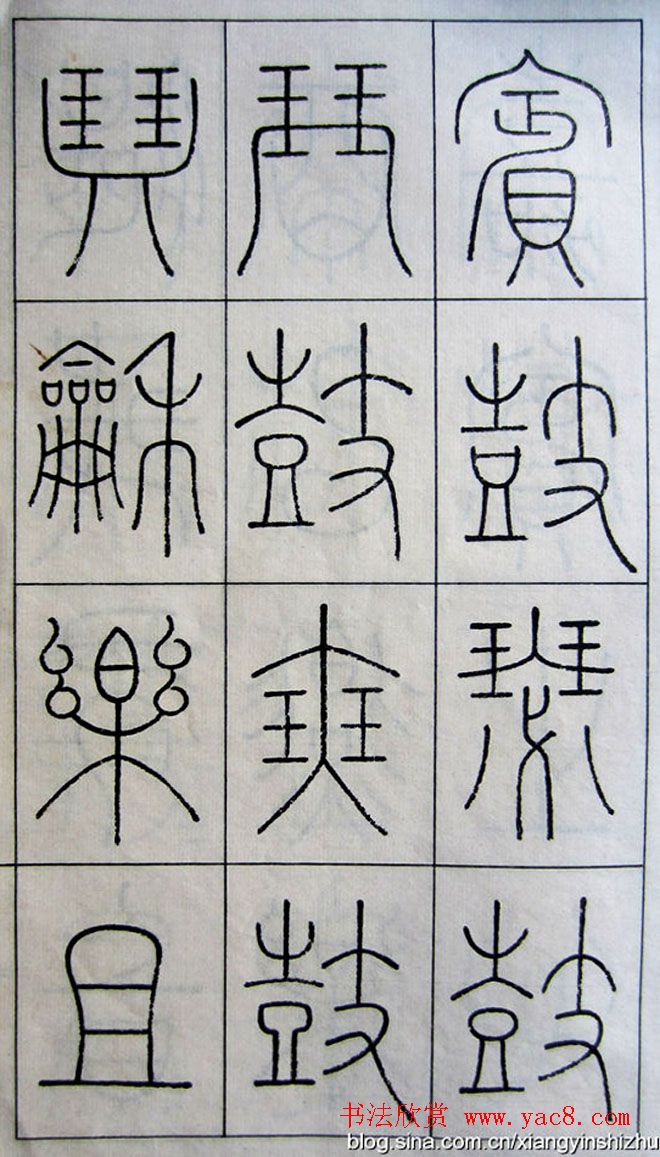 賓鼓瑟鼓
琴鼓瑟鼓
琴龢樂且
书法欣赏 www.yac8.com
blog.sina.com.cn/xiangyinshizhu